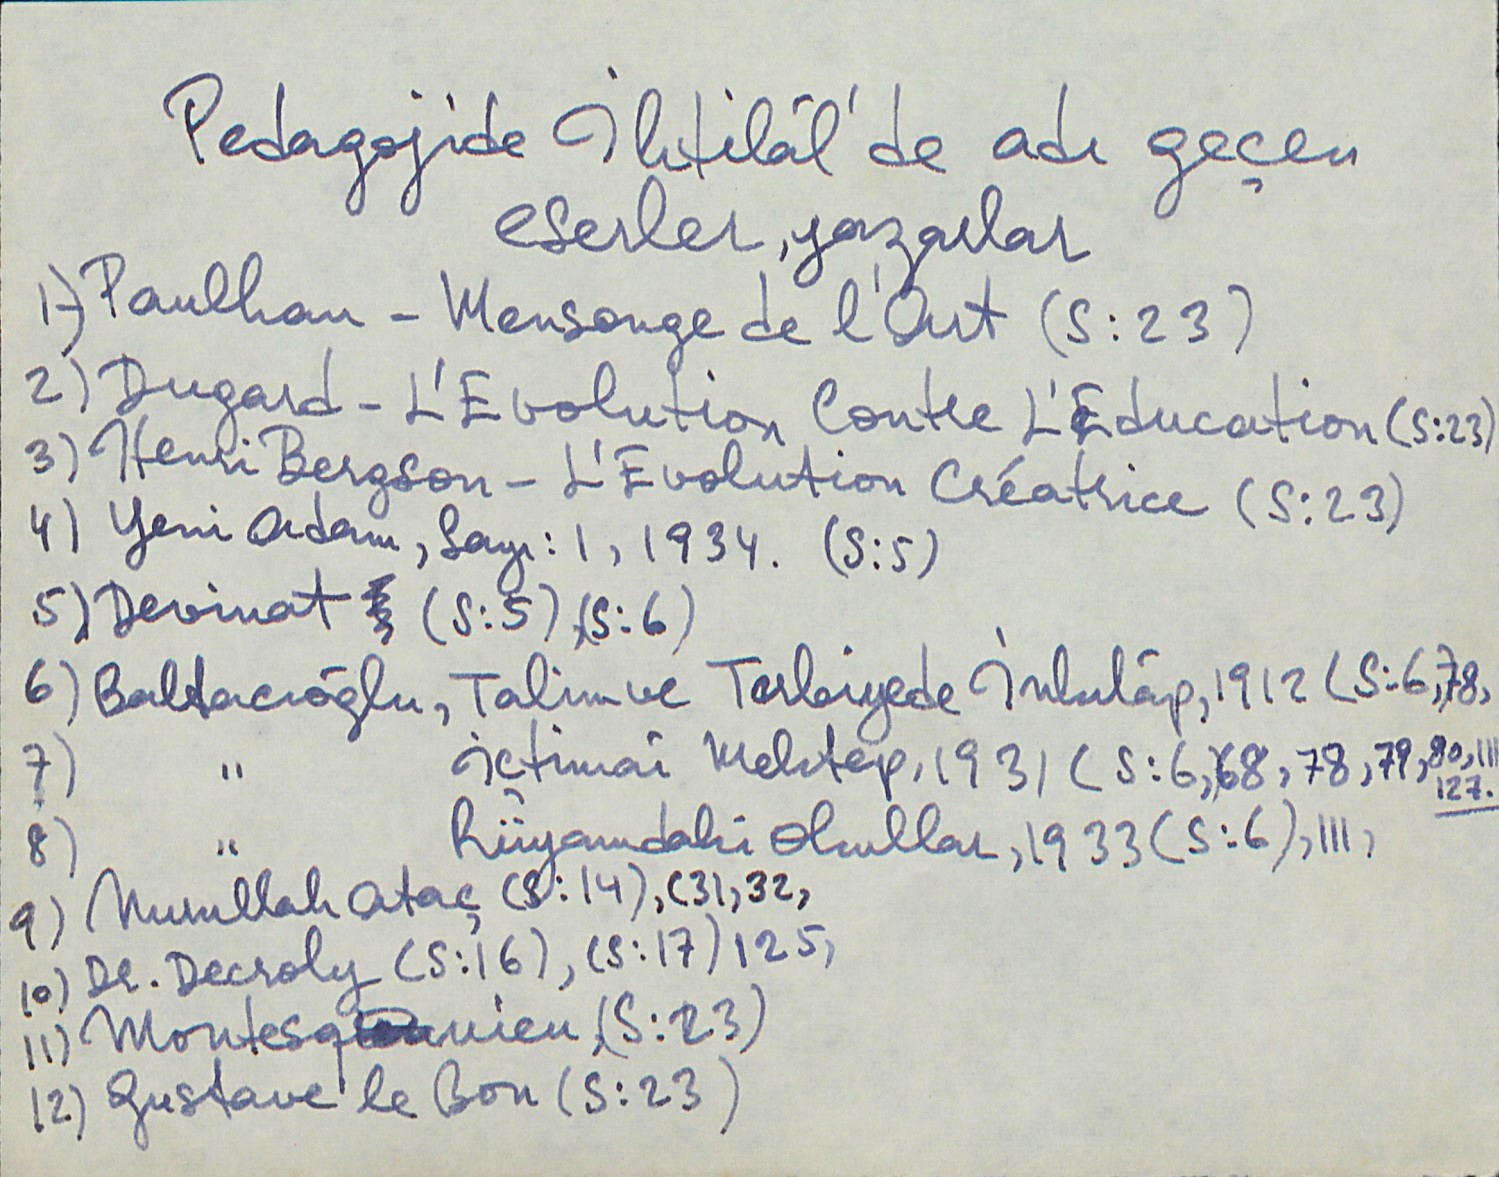 Pedagojide İhtilâl'de adı geçen
eserler, yazarlar
1-) Paulhan - Mensonge de l'Art (S:23)
2) Dugard - L'Evolution Contre L'Education (S:23)
3) Henri Bergson - L'Evolution Créatrice (S:23)
4) Yeni Adam, Sayı: 1, 1934. (S:5)
5) Devinat (S:5), (S:6)
6) Baltacıoğlu, Talim ve Terbiyede İnkılâp, 1912 (S:6, 78,
7) " İçtimai Mektep, 1931 (S:6, 68, 78, 79, 80, 111
127.
8) " Rüyamdaki Okullar, 1933 (S:6), 111,
9) Nurullah Ataç (S:14), (31, 32,
10) Dr. Decroly (S:16), (S:17) 125,
11) Montesquieu, (S:23)
12) Gustave le Bon (S:23)